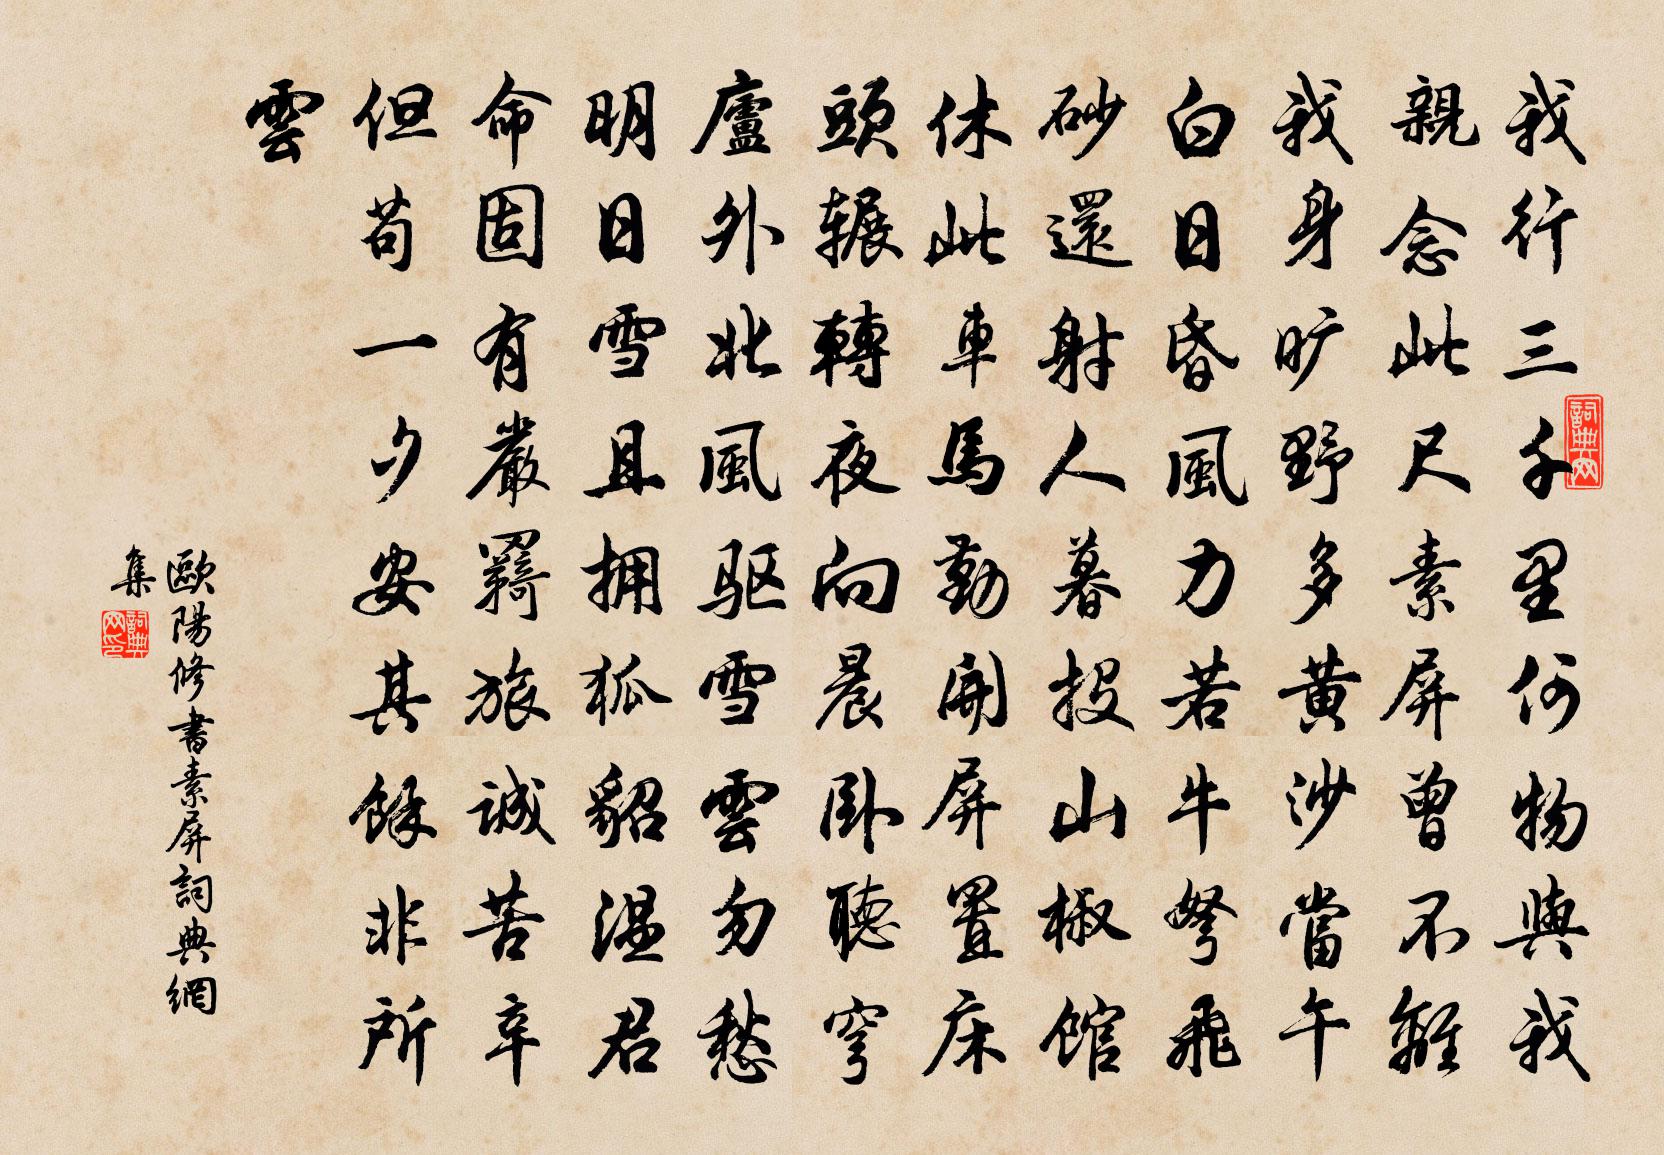 我行三千里何物與我
親念此尺素屏曾不離
我身旷野多黄沙當午
白日昏風力若牛弩飛
砂還射人暮投山椒館
休此車馬勤開屏置床
頭辗轉夜向晨卧聽穹
廬外北風驱雪雲勿愁
明日雪且拥狐貂温君
命固有嚴羇旅誠苦辛
但苟一夕安其餘非所
雲
歐陽修書素屏詞典網
集
詞典网
詞典网印